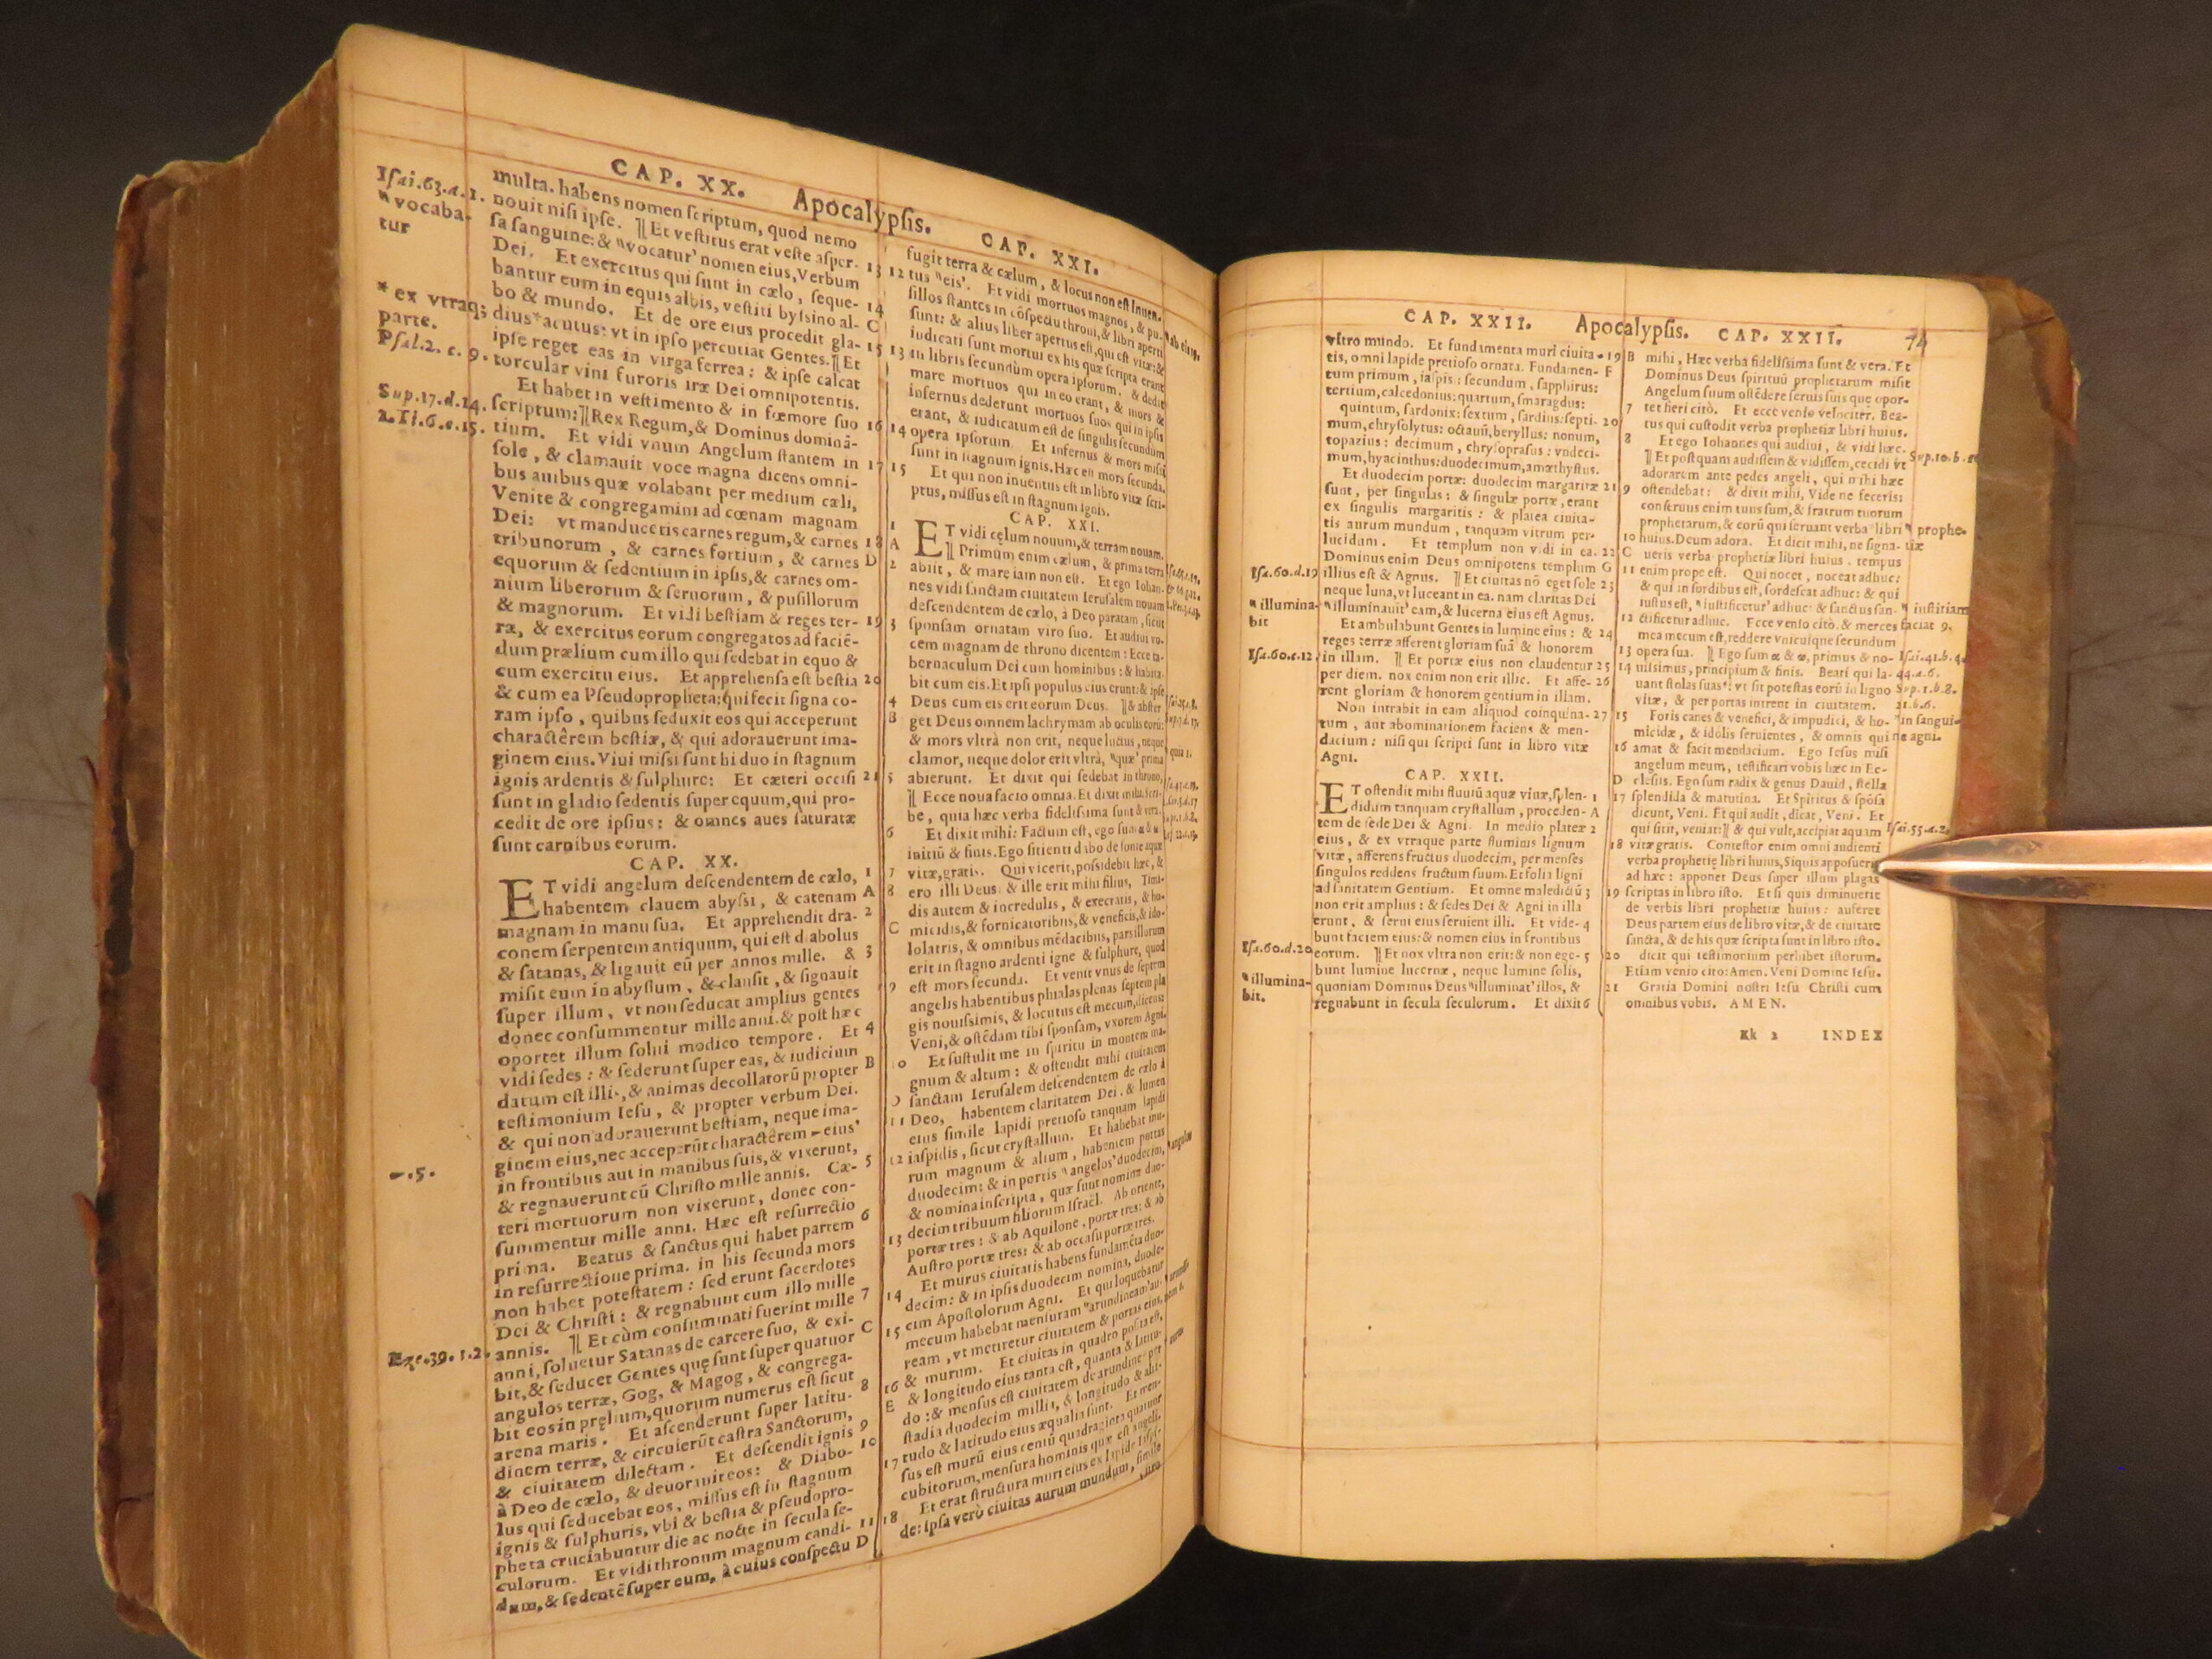 CAP. XX. Apocalypſis. CAP. XXI.
Iſai.63.a.1.
"vocaba-
tur
* ex vtraq;
parte.
Pſal.2. c. 9.
Sup.17.d.14.
1.Ti.6.c.15.
-.5.
Eze.39.1.2.
multa. habens nomen ſcriptum, quod nemo
nouit niſi ipſe. ¶ Et veſtitus erat veſte aſper-
ſa ſanguine: & "vocatur' nomen eius, Verbum 13
Dei. Et exercitus qui ſunt in cælo, ſeque-
bantur eum in equis albis, veſtiti byſsino al- 14
bo & mundo. Et de ore eius procedit gla- C
dius*acutus: vt in ipſo percutiat Gentes. ¶ Et 15
ipſe reget eas in virga ferrea: & ipſe calcat
torcular vini furoris iræ Dei omnipotentis.
Et habet in veſtimento & in fœmore ſuo
ſcriptum: ¶ Rex Regum, & Dominus dominā- 16
tium. Et vidi vnum Angelum ſtantem in 17
ſole, & clamauit voce magna dicens omni-
bus auibus quæ volabant per medium cæli,
Venite & congregamini ad cœnam magnam
Dei: vt manducetis carnes regum, & carnes 18
tribunorum, & carnes fortium, & carnes D
equorum & ſedentium in ipſis, & carnes om-
nium liberorum & ſeruorum, & puſillorum
& magnorum. Et vidi beſtiam & reges ter- 19
ræ, & exercitus eorum congregatos ad faciē-
dum prælium cum illo qui ſedebat in equo &
cum exercitu eius. Et apprehenſa eſt beſtia 20
& cum ea Pſeudopropheta: qui fecit ſigna co-
ram ipſo, quibus ſeduxit eos qui acceperunt
charactêrem beſtiæ, & qui adorauerunt ima-
ginem eius. Viui miſsi ſunt hi duo in ſtagnum
ignis ardentis & ſulphure: Et cæteri occiſi 21
ſunt in gladio ſedentis ſuper equum, qui pro-
cedit de ore ipſius: & omnes aues ſaturatæ
ſunt carnibus eorum.
CAP. XX.
ET vidi angelum deſcendentem de cælo, 1
habentem clauem abyſsi, & catenam A
magnam in manu ſua. Et apprehendit dra- 2
conem ſerpentem antiquum, qui eſt diabolus
& ſatanas, & ligauit eū per annos mille. & 3
miſit eum in abyſſum, & clauſit, & ſignauit
ſuper illum, vt non ſeducat amplius gentes
donec conſummentur mille anni. & poſt hæc
oportet illum ſolui modico tempore. Et 4
vidi ſedes: & ſederunt ſuper eas, & iudicium
datum eſt illis, & animas decollatorū propter B
teſtimonium Ieſu, & propter verbum Dei.
& qui non adorauerunt beſtiam, neque ima-
ginem eius, nec acceperūt charactêrem - eius'
in frontibus aut in manibus ſuis, & vixerunt,
& regnauerunt cū Chriſto mille annis. Cæ- 5
teri mortuorum non vixerunt, donec con-
ſummentur mille anni. Hæc eſt reſurrectio
prima. Beatus & ſanctus qui habet partem 6
in reſurrectione prima. in his ſecunda mors
non habet poteſtatem: ſed erunt ſacerdotes
Dei & Chriſti: & regnabunt cum illo mille
annis. ¶ Et cùm conſummati fuerint mille 7
anni, ſoluetur Satanas de carcere ſuo, & exi- C
bit, & ſeducet Gentes quę ſunt ſuper quatuor
angulos terræ, Gog, & Magog, & congrega-
bit eos in pręlium, quorum numerus eſt ſicut 8
arena maris. Et aſcenderunt ſuper latitu-
dinem terræ, & circuierūt caſtra Sanctorum,
& ciuitatem dilectam. Et deſcendit ignis 9
à Deo de cælo, & deuorauit eos: & Diabo- 10
lus qui ſeducebat eos, miſſus eſt in ſtagnum
ignis & ſulphuris, vbi & beſtia & pſeudopro-
pheta cruciabuntur die ac nocte in ſecula ſe-
culorum. Et vidi thronum magnum candi- 11
dum, & ſedentē ſuper eum, à cuius conſpectu D
fugit terra & cælum, & locus non eſt inuen-
12 tus "eis'. Et vidi mortuos magnos, & pu-
ſillos ſtantes in cōſpectu throni, & libri aperti
ſunt: & alius liber apertus eſt, qui eſt vitæ: &
iudicati ſunt mortui ex his quæ ſcripta erant
13 in libris ſecundùm opera ipſorum. & dedit
mare mortuos qui in eo erant, & mors &
infernus dederunt mortuos ſuos qui in ipſis
erant, & iudicatum eſt de ſingulis ſecundum
14 opera ipſorum. Et infernus & mors miſsi
ſunt in ſtagnum ignis. Hæc eſt mors ſecunda.
15 Et qui non inuentus eſt in libro vitæ ſcri-
ptus, miſſus eſt in ſtagnum ignis.
CAP. XXI.
1 ET vidi cęlum nouum, & terram nouam.
A ¶ Primùm enim cælum, & prima terra
2 abiit, & mare iam non eſt. Et ego Iohan-
nes vidi ſanctam ciuitatem Ieruſalem nouam
deſcendentem de cælo, à Deo paratam, ſicut
3 ſponſam ornatam viro ſuo. Et audiui vo-
cem magnam de throno dicentem: Ecce ta-
bernaculum Dei cum hominibus: & habita-
bit cum eis. Et ipſi populus eius erunt: & ipſe
4 Deus cum eis erit eorum Deus. ¶ & abſter-
B get Deus omnem lachrymam ab oculis eorū:
& mors vltrà non erit, neque luctus, neque
clamor, neque dolor erit vltrà, "quæ' prima
5 abierunt. Et dixit qui ſedebat in throno,
¶ Ecce noua facio omnia. Et dixit mihi. Scri-
be, quia hæc verba fideliſsima ſunt & vera.
6 Et dixit mihi: Factum eſt, ego ſum α & ω
initiū & finis. Ego ſitienti dabo de fonte aquæ
7 vitæ, gratis. Qui vicerit, poſsidebit hæc, &
8 ero illi Deus: & ille erit mihi filius, Timi-
dis autem & incredulis, & execratis, & ho-
C micidis, & fornicatoribus, & veneficis, & ido-
lolatris, & omnibus mēdacibus, pars illorum
erit in ſtagno ardenti igne & ſulphure, quod
9 eſt mors ſecunda. Et venit vnus de ſeptem
angelis habentibus phialas plenas ſeptem pla
gis nouiſsimis, & locutus eſt mecum, dicens:
Veni, & oſtēdam tibi ſponſam, vxorem Agni.
10 Et ſuſtulit me in ſpiritu in montem ma-
gnum & altum: & oſtendit mihi ciuitatem
D ſanctam Ieruſalem deſcendentem de cælo à
11 Deo, habentem claritatem Dei. & lumen
eius ſimile lapidi pretioſo tanquam lapidi
12 iaſpidis, ſicut cryſtallum. Et habebat mu-
rum magnum & altum, habentem portas
duodecim: & in portis "angelos' duodecim,
& nomina inſcripta, quæ ſunt nomina duo-
decim tribuum filiorum Iſraël. Ab oriente,
13 portæ tres: & ab Aquilone, portæ tres: & ab
Auſtro portæ tres: & ab occaſu portæ tres.
Et murus ciuitatis habens fundamēta duo-
14 decim: & in ipſis duodecim nomina, duode-
cim Apoſtolorum Agni. Et qui loquebatur
15 mecum habebat menſuram "arundineam' au-
ream, vt metiretur ciuitatem & portas eius,
16 & murum. Et ciuitas in quadro poſita eſt,
E & longitudo eius tanta eſt, quanta & latitu-
do: & menſus eſt ciuitatem de arundine per
ſtadia duodecim millia, & longitudo & alti-
tudo & latitudo eius æqualia ſunt. Et men-
17 ſus eſt murū eius centū quadraginta quatuor
cubitorum, menſura hominis quæ eſt angeli.
18 Et erat ſtructura muri eius ex lapide iaſpi-
de: ipſa verò ciuitas aurum mundum, ſimile
vitro
"ab eis.
"quia
"angulos
CAP. XXII. Apocalypſis. CAP. XXII. 74
Iſa.60.d.19
"illumina-
bit
Iſa.60.c.12.
Iſa.60.d.20
"illumina-
bit.
vitro mundo. Et fundamenta muri ciuita- 19
tis, omni lapide pretioſo ornata. Fundamen- F
tum primum, iaſpis: ſecundum, ſapphirus:
tertium, calcedonius: quartum, ſmaragdus:
quintum, ſardonix: ſextum, ſardius: ſepti- 20
mum, chryſolytus: octauū, beryllus: nonum,
topazius: decimum, chryſopraſus: vndeci-
mum, hyacinthus: duodecimum, amæthyſtus.
Et duodecim portæ: duodecim margaritæ 21
ſunt, per ſingulas: & ſingulæ portæ, erant
ex ſingulis margaritis: & platea ciuita-
tis aurum mundum, tanquam vitrum per-
lucidum. Et templum non vidi in ea. 22
Dominus enim Deus omnipotens templum G
illius eſt & Agnus. ¶ Et ciuitas nō eget ſole 23
neque luna, vt luceant in ea. nam claritas Dei
"illuminauit' eam, & lucerna eius eſt Agnus.
Et ambulabunt Gentes in lumine eius: & 24
reges terræ afferent gloriam ſuā & honorem
in illam. ¶ Et portæ eius non claudentur 25
per diem. nox enim non erit illic. Et affe- 26
rent gloriam & honorem gentium in illam.
Non intrabit in eam aliquod coinquina- 27
tum, aut abominationem faciens & men-
dacium: niſi qui ſcripti ſunt in libro vitæ
Agni.
CAP. XXII.
ET oſtendit mihi fluuiū aquæ viuæ, ſplen- 1
didum tanquam cryſtallum, proceden- A
tem de ſede Dei & Agni. In medio plateæ 2
eius, & ex vtraque parte fluminis lignum
vitæ, afferens fructus duodecim, per menſes
ſingulos reddens fructum ſuum. Et folia ligni
ad ſanitatem Gentium. Et omne maledictū 3
non erit amplius: & ſedes Dei & Agni in illa
erunt, & ſerui eius ſeruient illi. Et vide- 4
bunt faciem eius: & nomen eius in frontibus
eorum. ¶ Et nox vltra non erit: & non ege- 5
bunt lumine lucernæ, neque lumine ſolis,
quoniam Dominus Deus "illuminat' illos, &
regnabunt in ſecula ſeculorum. Et dixit 6
B mihi, Hæc verba fideliſsima ſunt & vera. Et
Dominus Deus ſpirituū prophetarum miſit
Angelum ſuum oſtēdere ſeruis ſuis quę opor-
7 tet fieri citò. Et ecce venio velociter. Bea-
tus qui cuſtodit verba prophetiæ libri huius.
8 Et ego Iohannes qui audiui, & vidi hæc.
¶ Et poſtquam audiſſem & vidiſſem, cecidi vt
adorarem ante pedes angeli, qui mihi hæc
9 oſtendebat: & dixit mihi, Vide ne feceris:
conſeruus enim tuus ſum, & fratrum tuorum
prophetarum, & corū qui ſeruant verba "libri
10 huius. Deum adora. Et dicit mihi, ne ſigna-
C ueris verba prophetiæ libri huius. tempus
11 enim prope eſt. Qui nocet, noceat adhuc:
& qui in ſordibus eſt, ſordeſcat adhuc: & qui
iuſtus eſt, "iuſtificetur' adhuc: & ſanctus ſan-
12 ctificetur adhuc. Ecce venio citò. & merces
mea mecum eſt, reddere vnicuique ſecundum
13 opera ſua. ¶ Ego ſum α & ω, primus & no-
14 uiſsimus, principium & finis. Beati qui la-
uant ſtolas ſuas*: vt ſit poteſtas eorū in ligno
vitæ, & per portas intrent in ciuitatem.
15 Foris canes & venefici, & impudici, & ho-
micidæ, & idolis ſeruientes, & omnis qui
16 amat & facit mendacium. Ego Ieſus miſi
angelum meum, teſtificari vobis hæc in Ec-
D cleſiis. Ego ſum radix & genus Dauid, ſtella
17 ſplendida & matutina. Et Spiritus & ſpōſa
dicunt, Veni. Et qui audit, dicat, Veni. Et
qui ſitit, veniat: ¶ & qui vult, accipiat aquam
18 vitæ gratis. Conteſtor enim omni audienti
verba prophetię libri huius, Si quis appoſuerit
ad hæc: apponet Deus ſuper illum plagas
19 ſcriptas in libro iſto. Et ſi quis diminuerit
de verbis libri prophetiæ huius: auferet
Deus partem eius de libro vitæ, & de ciuitate
ſancta, & de his quæ ſcripta ſunt in libro iſto.
20 dicit qui teſtimonium perhibet iſtorum.
Etiam venio cito: Amen. Veni Domine Ieſu.
21 Gratia Domini noſtri Ieſu Chriſti cum
omnibus vobis. AMEN.
Kk 2 INDEX
Sup.10.b.10
"prophe-
tiæ
"iuſtitiam
faciat 9.
Iſai.41.b.4.
44.a.6.
Sup. 1.b.8.
21.b.6.
*in ſangui-
ne agni.
Iſai.55.a.2.